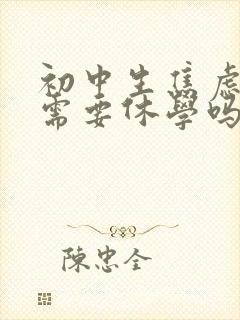 初中生焦虑
需要休學吗
陳忠全